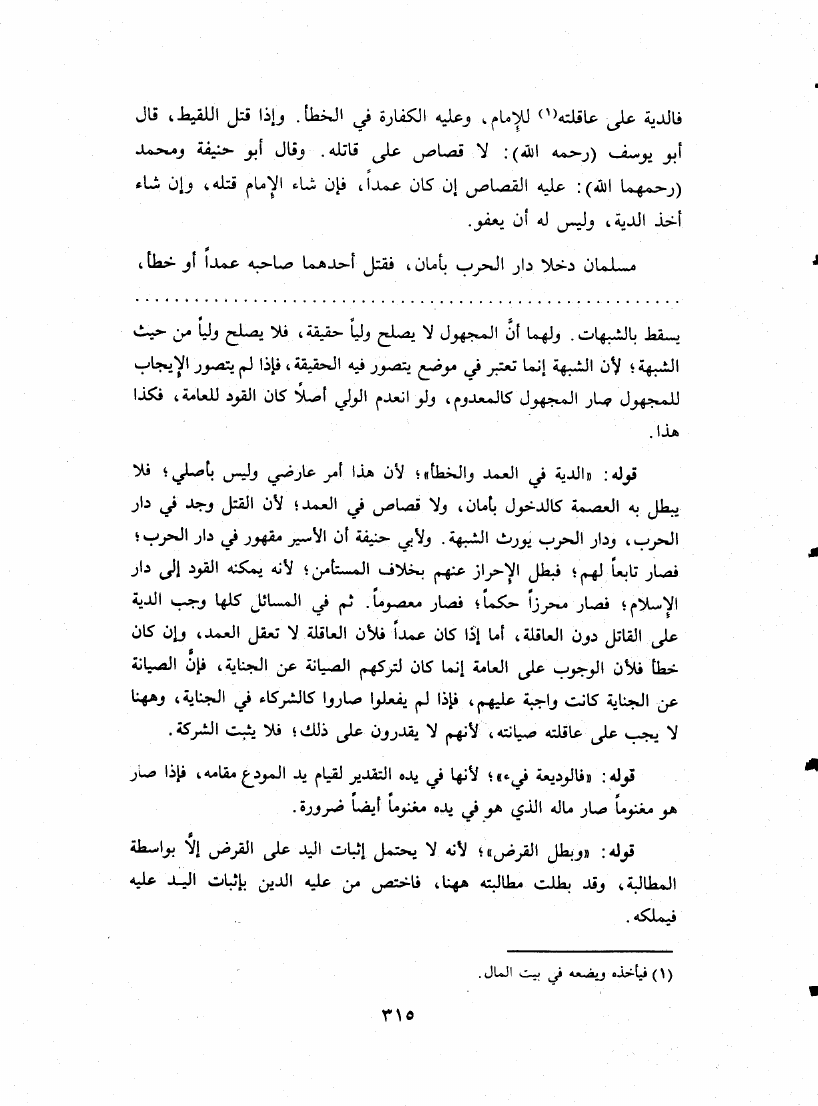 فالدية على عاقلته(١) للإمام، وعليه الكفارة في الخطأ. وإذا قتل اللقيط، قال
أبو يوسف (رحمه الله): لا قصاص على قاتله. وقال أبو حنيفة ومحمد
(رحمهما الله): عليه القصاص إن كان عمداً، فإن شاء الإمام قتله، وإن شاء
أخذ الدية، وليس له أن يعفو.
مسلمان دخلا دار الحرب بأمان، فقتل أحدهما صاحبه عمداً أو خطأ،
يسقط بالشبهات. ولهما أنَّ المجهول لا يصلح ولياً حقيقة، فلا يصلح ولياً من حيث
الشبهة؛ لأن الشبهة إنما تعتبر في موضع يتصور فيه الحقيقة، فإذا لم يتصور الإيجاب
للمجهول صار المجهول كالمعدوم، ولو انعدم الولي أصلاً كان القود للعامة، فكذا
هذا.
قوله: «الدية في العمد والخطأ»؛ لأن هذا أمر عارضي وليس بأصلي؛ فلا
يبطل به العصمة كالدخول بأمان، ولا قصاص في العمد؛ لأن القتل وجد في دار
الحرب، ودار الحرب يورث الشبهة. ولأبي حنيفة أن الأسير مقهور في دار الحرب؛
فصار تابعاً لهم؛ فبطل الإحراز عنهم بخلاف المستأمن؛ لأنه يمكنه القود إلى دار
الإسلام؛ فصار محرزاً حكماً؛ فصار معصوماً. ثم في المسائل كلها وجب الدية
على القاتل دون العاقلة، أما إذا كان عمداً فلأن العاقلة لا تعقل العمد، وإن كان
خطأ فلأن الوجوب على العامة إنما كان لتركهم الصيانة عن الجناية، فإنَّ الصيانة
عن الجناية كانت واجبة عليهم، فإذا لم يفعلوا صاروا كالشركاء في الجناية، وههنا
لا يجب على عاقلته صيانته، لأنهم لا يقدرون على ذلك؛ فلا يثبت الشركة.
قوله: «فالوديعة فيء»؛ لأنها في يده التقدير لقيام يد المودع مقامه، فإذا صار
هو مغنوماً صار ماله الذي هو في يده مغنوماً أيضاً ضرورة.
قوله: «وبطل القرض»؛ لأنه لا يحتمل إثبات اليد على القرض إلاَّ بواسطة
المطالبة، وقد بطلت مطالبته ههنا، فاختص من عليه الدين بإثبات اليد عليه
فيملكه.
(١) فيأخذه ويضعه في بيت المال.
٣١٥